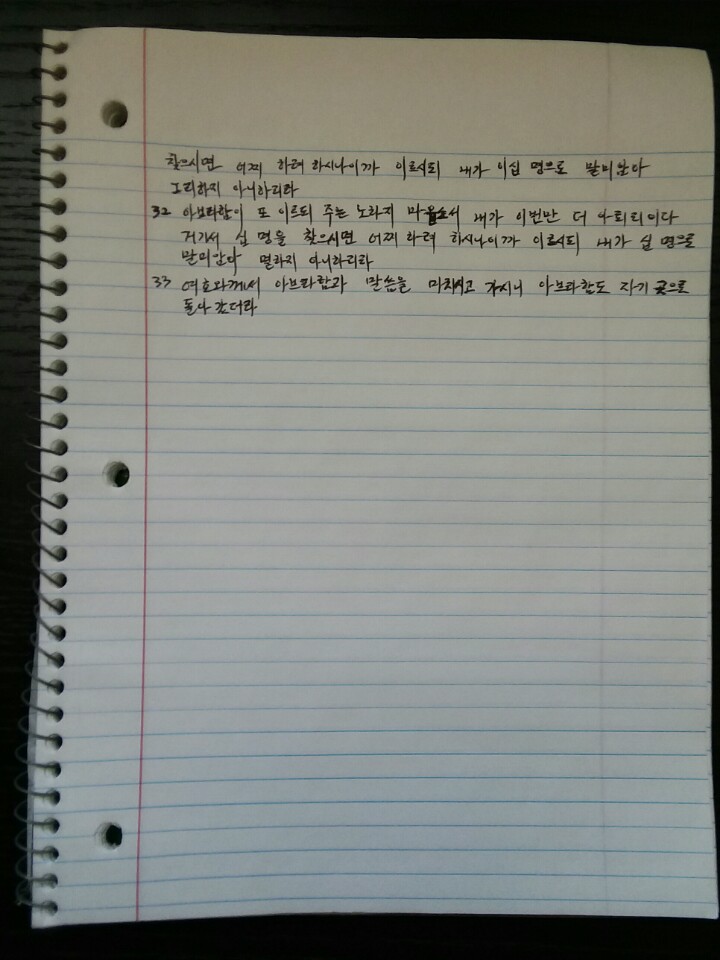 찾으시면 어찌 하려 하시나이까 이르시되 내가 이십 명으로 말미암아
그리하지 아니하리라
32 아브라함이 또 이르되 주는 노하지 마옵소서 내가 이번만 더 아뢰리이다
거기서 십 명을 찾으시면 어찌 하려 하시나이까 이르시되 내가 십 명으로
말미암아 멸하지 아니하리라
33 여호와께서 아브라함과 말씀을 마치시고 가시니 아브라함도 자기 곳으로
돌아갔더라